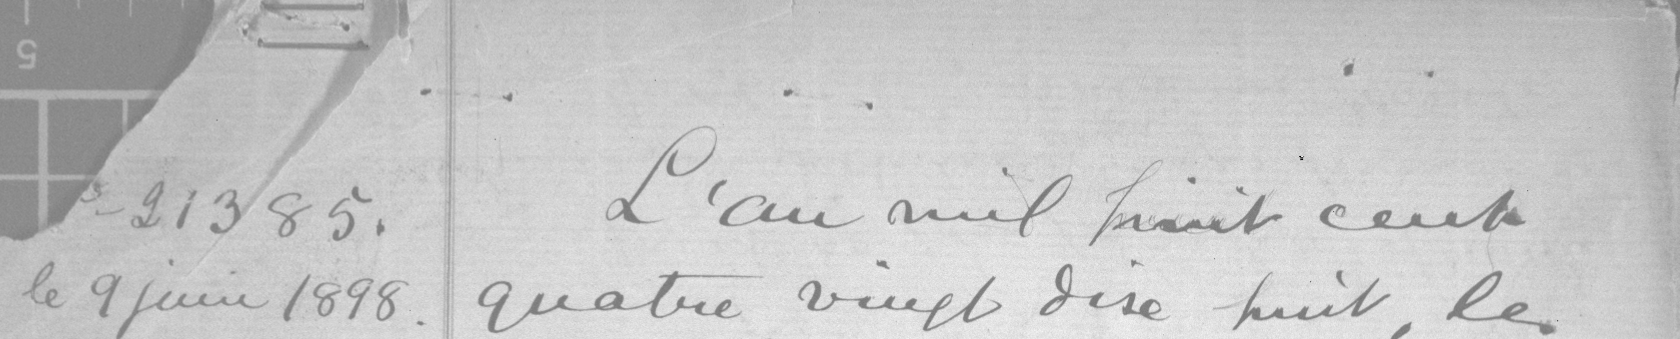 5
21385.
le 9 juin 1898.
L'an mil huit cent
quatre vingt dix huit, le